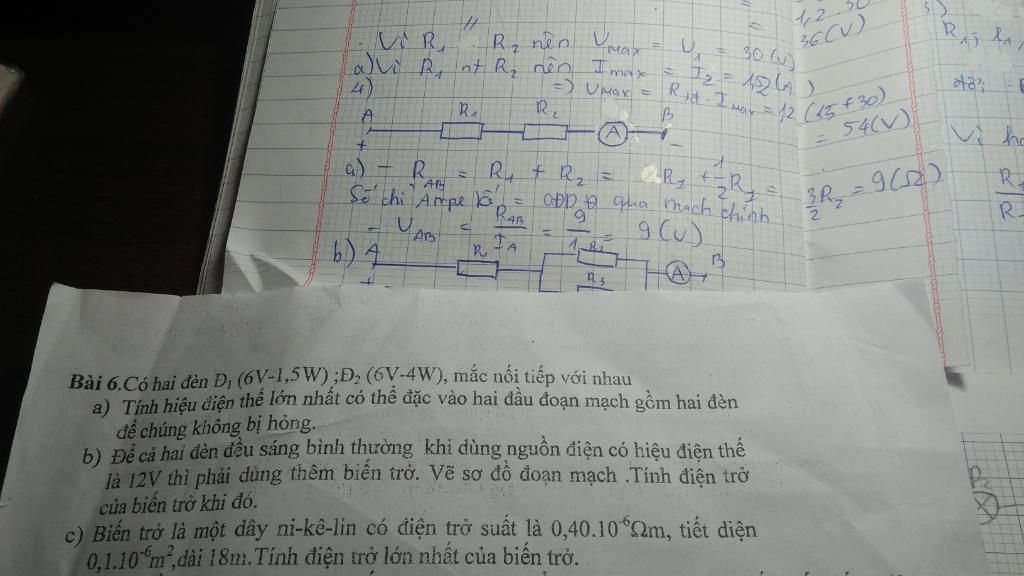 =
= 1,2 30
36(V)
Vì R1 // R2 nên Umax = U1 = 30(V)
a) Vì R1 nt R2 nên Imax = I2 = 1,2(A)
=) Umax = Rtđ. Imax = 1,2 (15+30)
= 54(V)
4)
A R1 R2 A B
+ -
a) - RAB = R1 + R2 = R1 + 1/2 R1 = 3/2 R2 = 9(Ω)
Số chỉ Ampe kế = CĐDĐ qua mạch chính
- UAB = RAB/IA = 9/1 = 9(V)
b) A R R2 A B
+ R3
3)
R1; l1;
Vì
R1
Bài 6.Có hai đèn Đ1 (6V-1,5W) ;Đ2 (6V-4W), mắc nối tiếp với nhau
a) Tính hiệu điện thế lớn nhất có thể đặc vào hai đầu đoạn mạch gồm hai đèn
để chúng không bị hỏng.
b) Để cả hai đèn đều sáng bình thường khi dùng nguồn điện có hiệu điện thế
là 12V thì phải dùng thêm biến trở. Vẽ sơ đồ đoạn mạch .Tính điện trở
của biến trở khi đó.
c) Biến trở là một dây ni-kê-lin có điện trở suất là 0,40.10⁻⁶Ωm, tiết diện
0,1.10⁻⁶m²,dài 18m.Tính điện trở lớn nhất của biến trở.